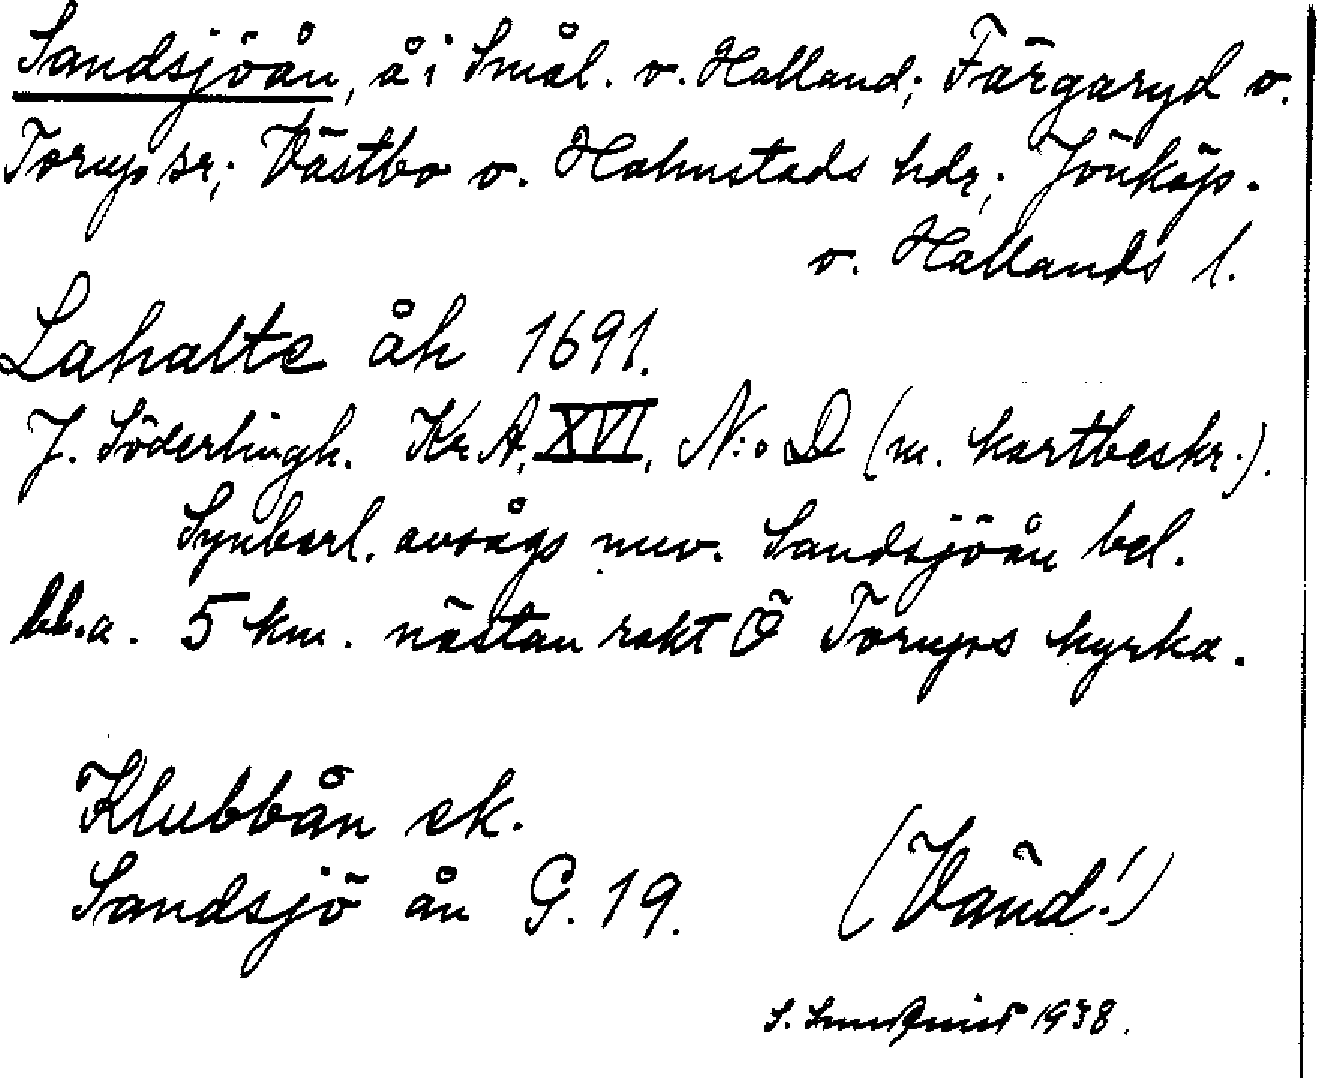 Sandsjöån, å i Smål. o. Halland; Färgaryd o.
Torup sr; Västbo o. Halmstads hdr; Jönköp.
o. Hallands l.
Lahalte åh 1691.
J. Söderlingh. Kr. A. XVI, N:o D (m. kartbeskr.).
Synbarl. avsågs nuv. Sandsjöån bel.
bl.a. 5 km. nästan rakt Ö Torups kyrka.
Klubbån ek.
Sandsjö ån G. 19.
(Vänd!)
S. 1938.